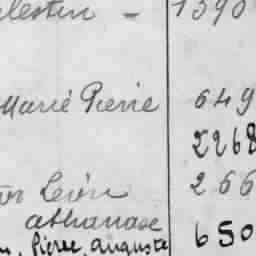 lestin - 1390
Marie Pierre 649
2268
Léon 266
athanase
Pierre, auguste 650